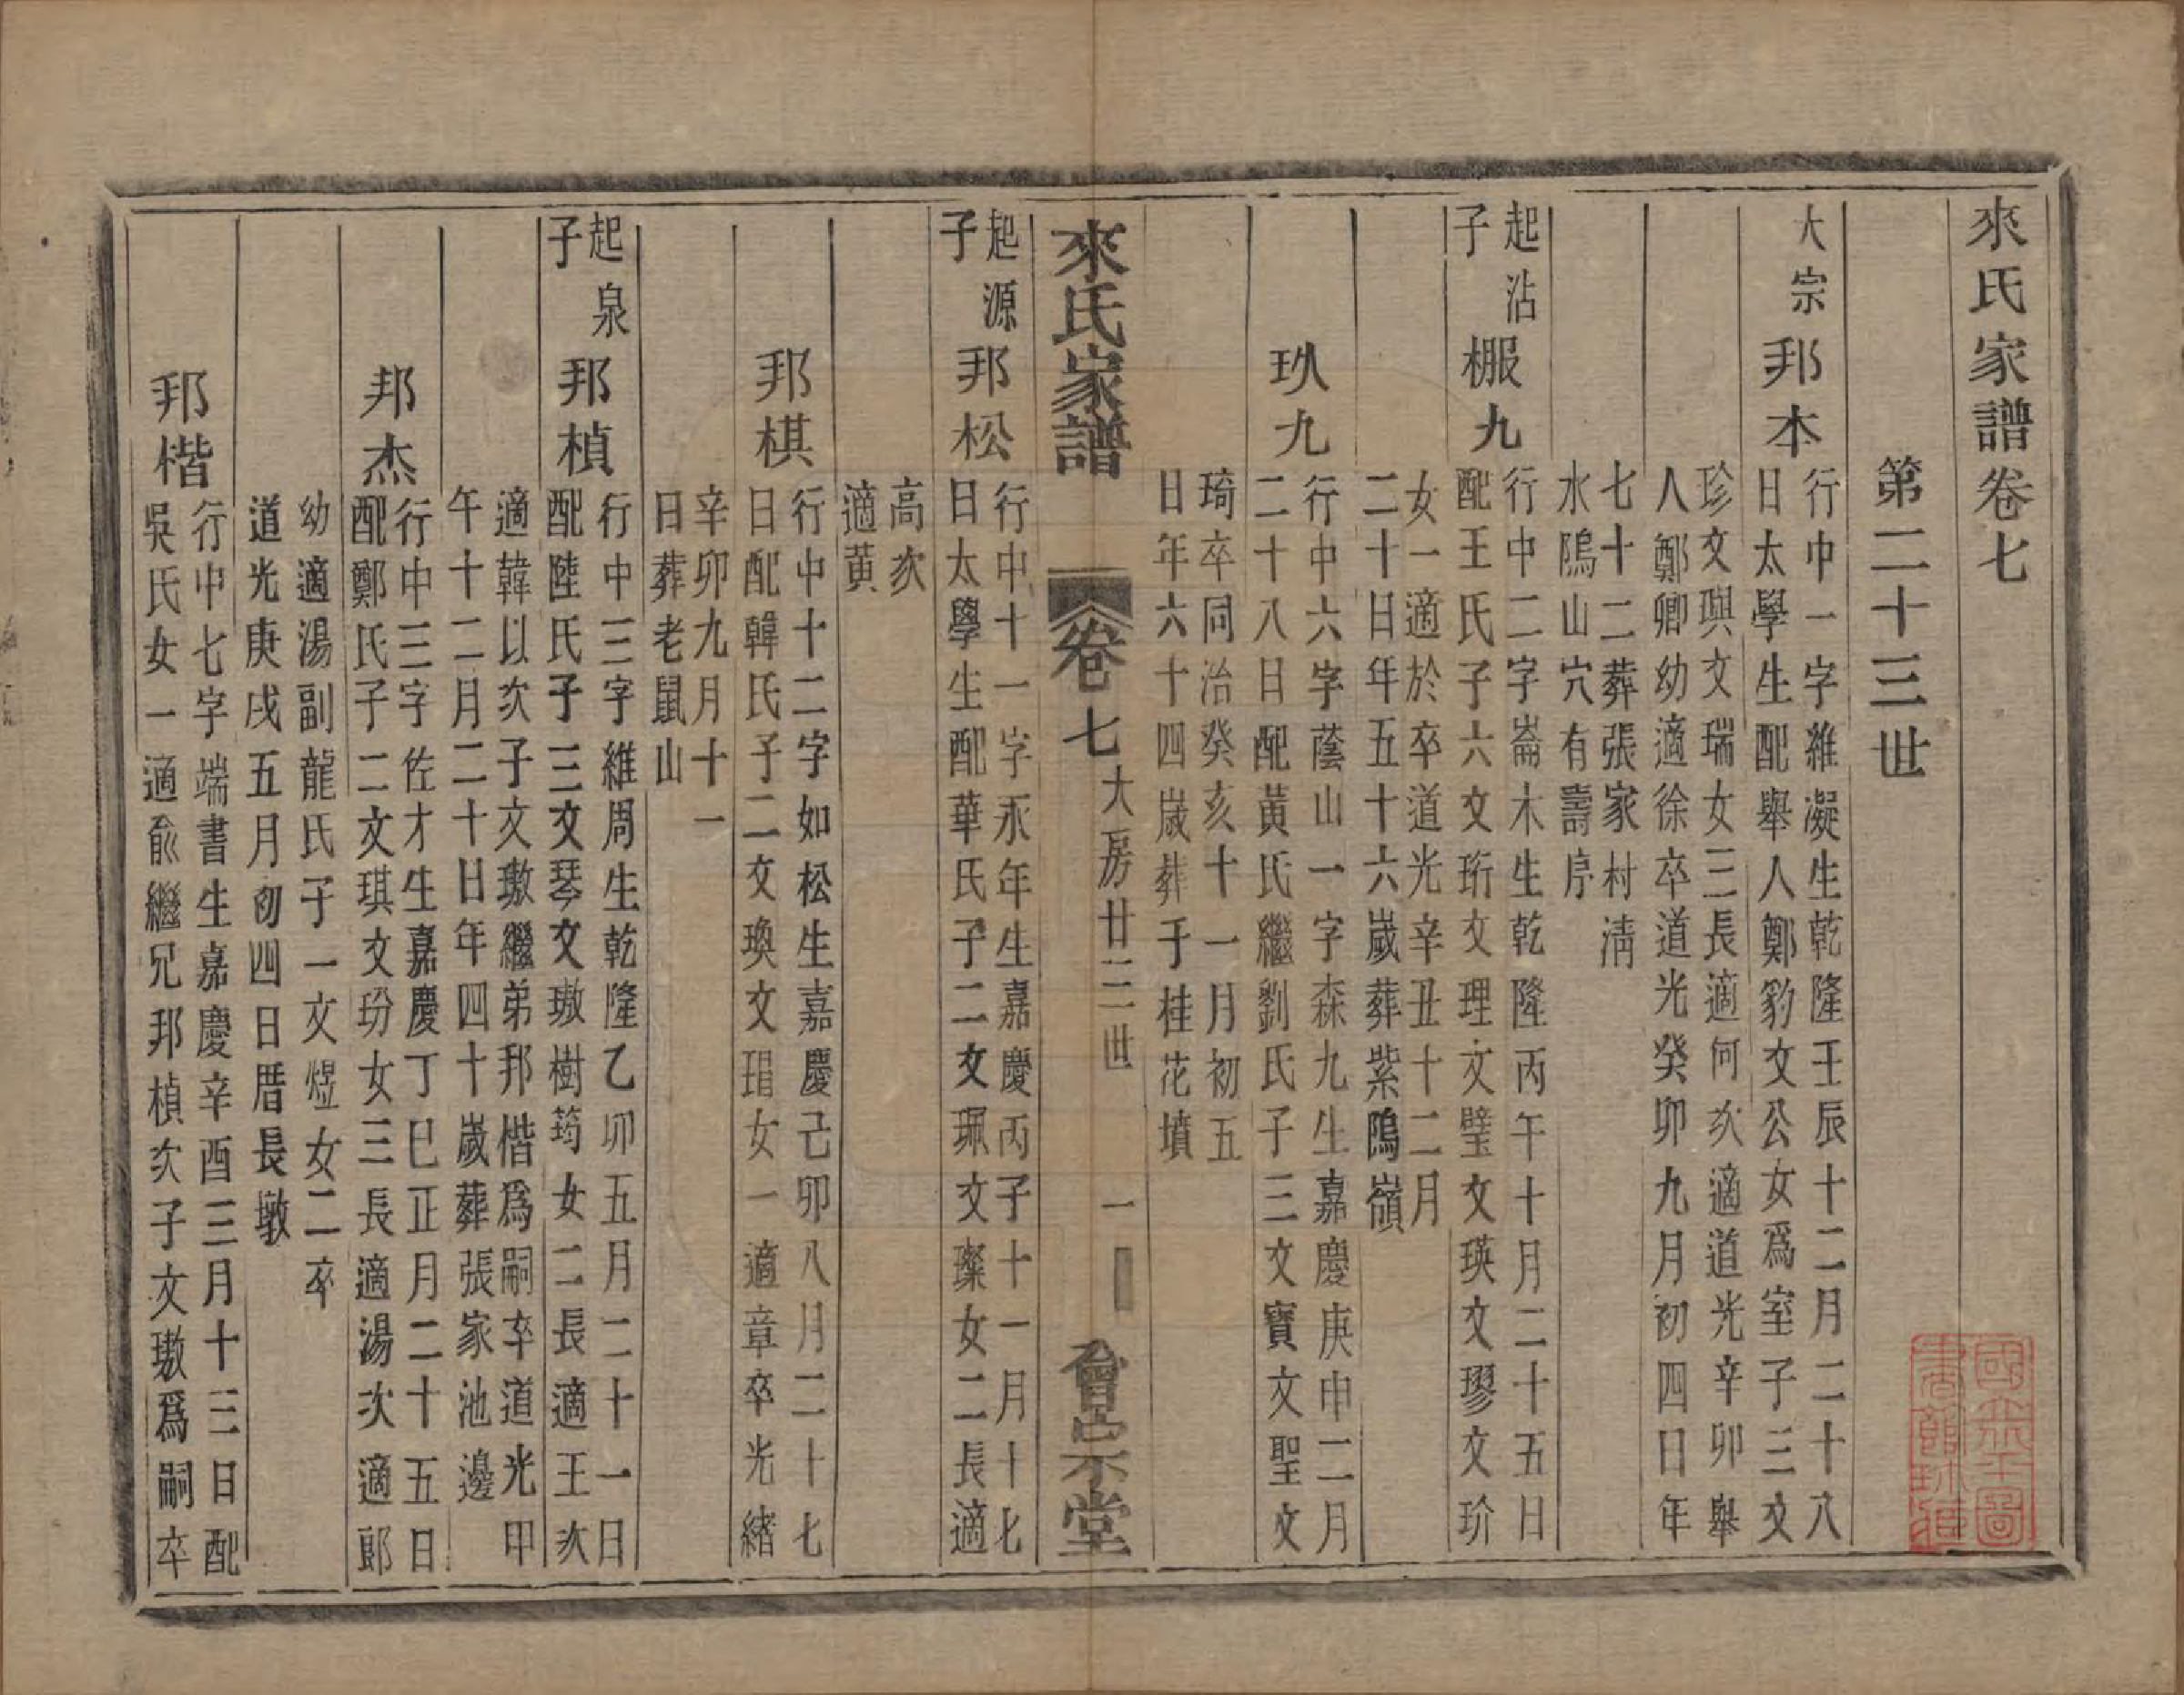 來氏家譜卷七
第二十三世
大宗
邦本
行中一字維凝生乾隆壬辰十二月二十八
日太學生配舉人鄭豹文公女爲室子三文
珍文璵文瑞女三長適何次適道光辛卯舉
人鄭卿幼適徐卒道光癸卯九月初四日年
七十二葬張家村淸
水隖山穴有壽序
起沾
子
棴九
行中二字崙木生乾隆丙午十月二十五日
配王氏子六文珩文理文璧文瑛文璆文玠
女一適於卒道光辛丑十二月
二十日年五十六歲葬紫隖嶺
玖九
行中六字蔭山一字森九生嘉慶庚申二月
二十八日配黃氏繼劉氏子三文寶文聖文
琦卒同治癸亥十一月初五
日年六十四歲葬于桂花墳
來氏家譜
卷七
大房廿三世
一
會宗堂
起源
子
邦松
行中十一字永年生嘉慶丙子十一月十七
日太學生配華氏子二文珮文璨女二長適
高次
適黃
邦棋
行中十二字如松生嘉慶己卯八月二十七
日配韓氏子二文瑍文琩女一適章卒光緒
辛卯九月十一
日葬老鼠山
起泉
子
邦楨
行中三字維周生乾隆乙卯五月二十一日
配陸氏子三文琴文璈樹筠女二長適王次
適韓以次子文璈繼弟邦楷爲嗣卒道光甲
午十二月二十日年四十歲葬張家池邊
邦杰
行中三字佐才生嘉慶丁巳正月二十五日
配鄭氏子二文琪文玢女三長適湯次適郎
幼適湯副龍氏子一文煜女二卒
道光庚戌五月初四日厝長墩
邦楷
行中七字端書生嘉慶辛酉三月十三日配
吳氏女一適俞繼兄邦楨次子文璈爲嗣卒